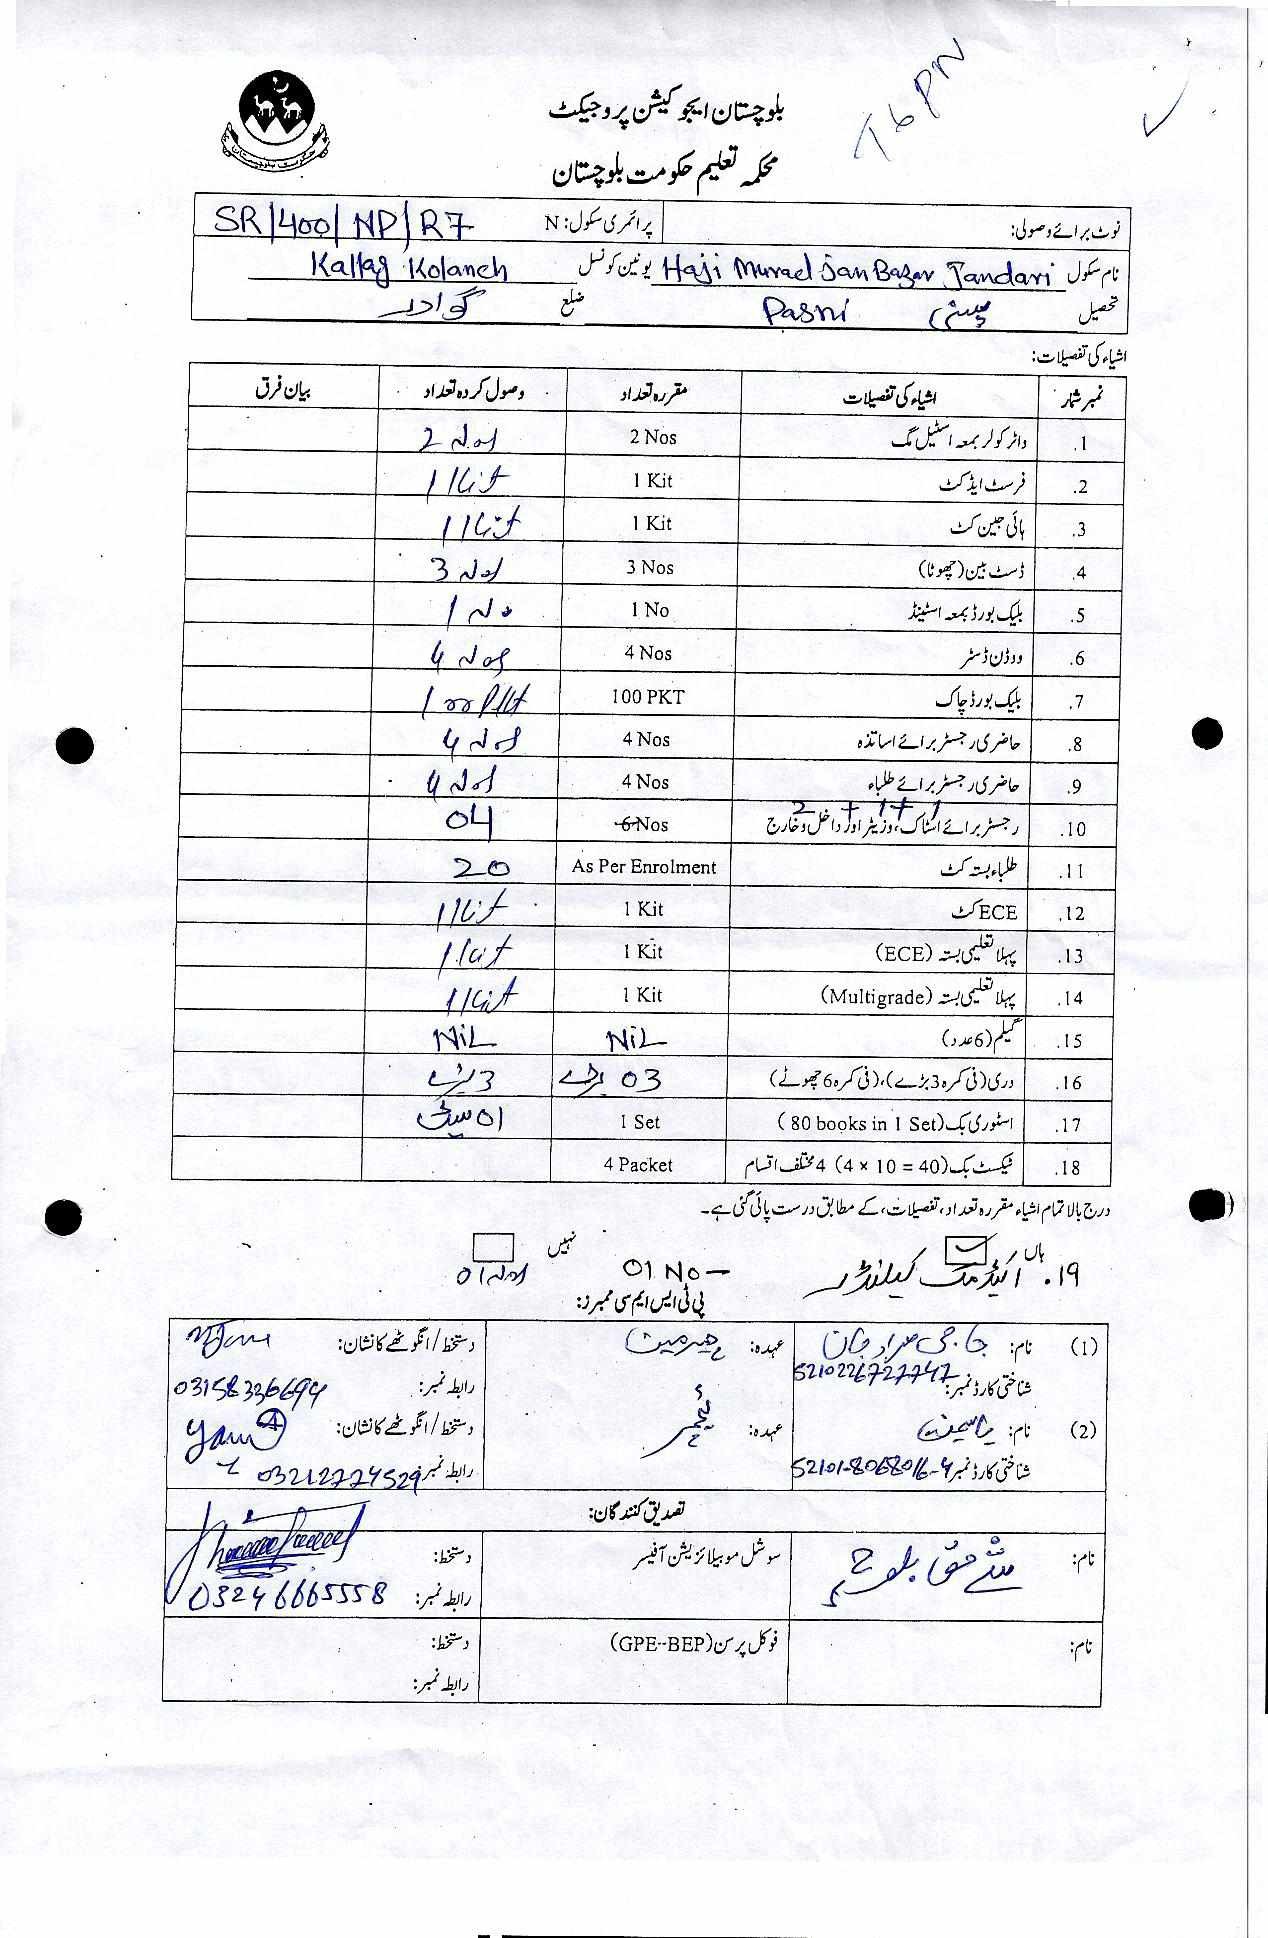 76 PN
بلوچستان ایجوکیشن پروجیکٹ
محکمہ تعلیم حکومت بلوچستان
نوٹ برائے وصولی: پرائمری سکول: N SR/400/NP/R7
نام سکول Haji Murad Jan Bazar Tandari یونین کونسل Kallag Kolanch
تحصیل پسنی Pasni ضلع گوادر
اشیاء کی تفصیلات:
نمبر شمار اشیاء کی تفصیلات مقررہ تعداد وصول کردہ تعداد بیان فرق
1. واٹر کولر بمعہ اسٹیل مگ 2 Nos 2 Nos
2. فرسٹ ایڈ کٹ 1 Kit 1 Kit
3. ہائی جین کٹ 1 Kit 1 Kit
4. ڈسٹ بین (چھوٹا) 3 Nos 3 Nos
5. بلیک بورڈ بمعہ اسٹینڈ 1 No 1 No
6. ووڈن ڈسٹر 4 Nos 4 Nos
7. بلیک بورڈ چاک 100 PKT 100 Pkt
8. حاضری رجسٹر برائے اساتذہ 4 Nos 4 Nos
9. حاضری رجسٹر برائے طلباء 4 Nos 4 Nos
2 + 1 + 1
10. رجسٹر برائے اسٹاک، وزیٹر اور داخل و خارج 6 Nos 04
11. طلباء بستہ کٹ As Per Enrolment 20
12. ECE کٹ 1 Kit 1 Kit
13. پہلا تعلیمی بستہ (ECE) 1 Kit 1 Kit
14. پہلا تعلیمی بستہ (Multigrade) 1 Kit 1 Kit
15. گیلم (6 عدد) NiL NiL
16. دری (فی کمرہ 3 بڑے)، (فی کمرہ 6 چھوٹے) 03 بڑے 3 بڑے
17. اسٹوری بک (80 books in 1 Set) 1 Set 01 سیٹ
18. ٹیکسٹ بک (4 × 10 = 40) 4 مختلف اقسام 4 Packet
درج بالا تمام اشیاء مقررہ تعداد، تفصیلات، کے مطابق درست پائی گئی ہے۔
ہاں نہیں
۱۹. اکیڈمک کیلنڈر 01 No - 01 Nos
پی ٹی ایس ایم سی ممبرز:
(1) نام: حاجی مراد جان عہدہ: چیرمین دستخط / انگوٹھے کا نشان:
شناختی کارڈ نمبر: 5210226727747 رابطہ نمبر: 03158336694
(2) نام: یاسمین عہدہ: ٹیچر دستخط / انگوٹھے کا نشان:
شناختی کارڈ نمبر 52101-8068016-4 رابطہ نمبر 03212724529
تصدیق کنندگان:
نام: بلوچ سوشل موبیلائزیشن آفیسر دستخط:
رابطہ نمبر: 03246665558
نام: فوکل پرسن (GPE--BEP) دستخط:
رابطہ نمبر: